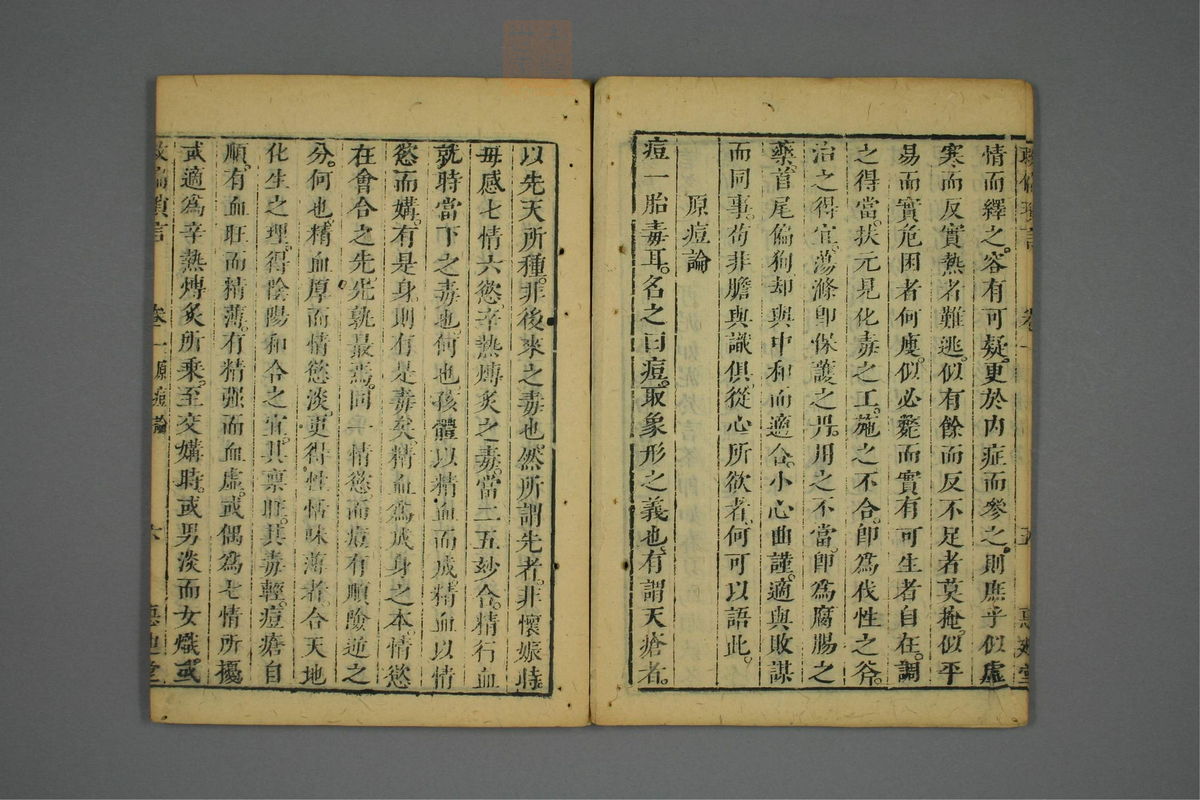 情而繹之。容有可疑。更於內症而參之。則庶乎似虛
寒而反實熱者難逃。似有餘而反不足者莫掩。似平
易而實危困者何廋。似必斃而實有可生者自在。調
之得當。扶元見化毒之工。施之不合。卽爲伐性之斧。
治之得宜。蕩滌卽保護之丹。用之不當。卽爲腐腸之
藥。首尾偏狥。却與中和而適合。小心曲謹。適與敗謀
而同事。苟非膽與識俱。從心所欲者。何可以語此。
原痘論
痘一胎毒耳。名之曰痘。取象形之義也。有謂天瘡者。
卷一
五
以先天所種。非後來之毒也。然所謂先者。非懷娠時
毋感七情六慾。辛熱煿炙之毒。當二五妙合。精行血
就時當下之毒也。何也。孩體以精血而成。精血以情
慾而媾。有是身。則有是毒矣。精血爲成身之本。情慾
在會合之先。先孰最焉。同一情慾。而痘有順險逆之
分。何也。精血厚而情慾淡。更得性恬味薄者。合天地
化生之理。得陰陽和合之宜。其稟旺。其毒輕。痘瘡自
順。有血旺而精薄。有精強而血虛。或偶爲七情所擾
或適爲辛熱煿炙所乘。至交媾時。或男淡而女熾。或
卷一 原痘論
六